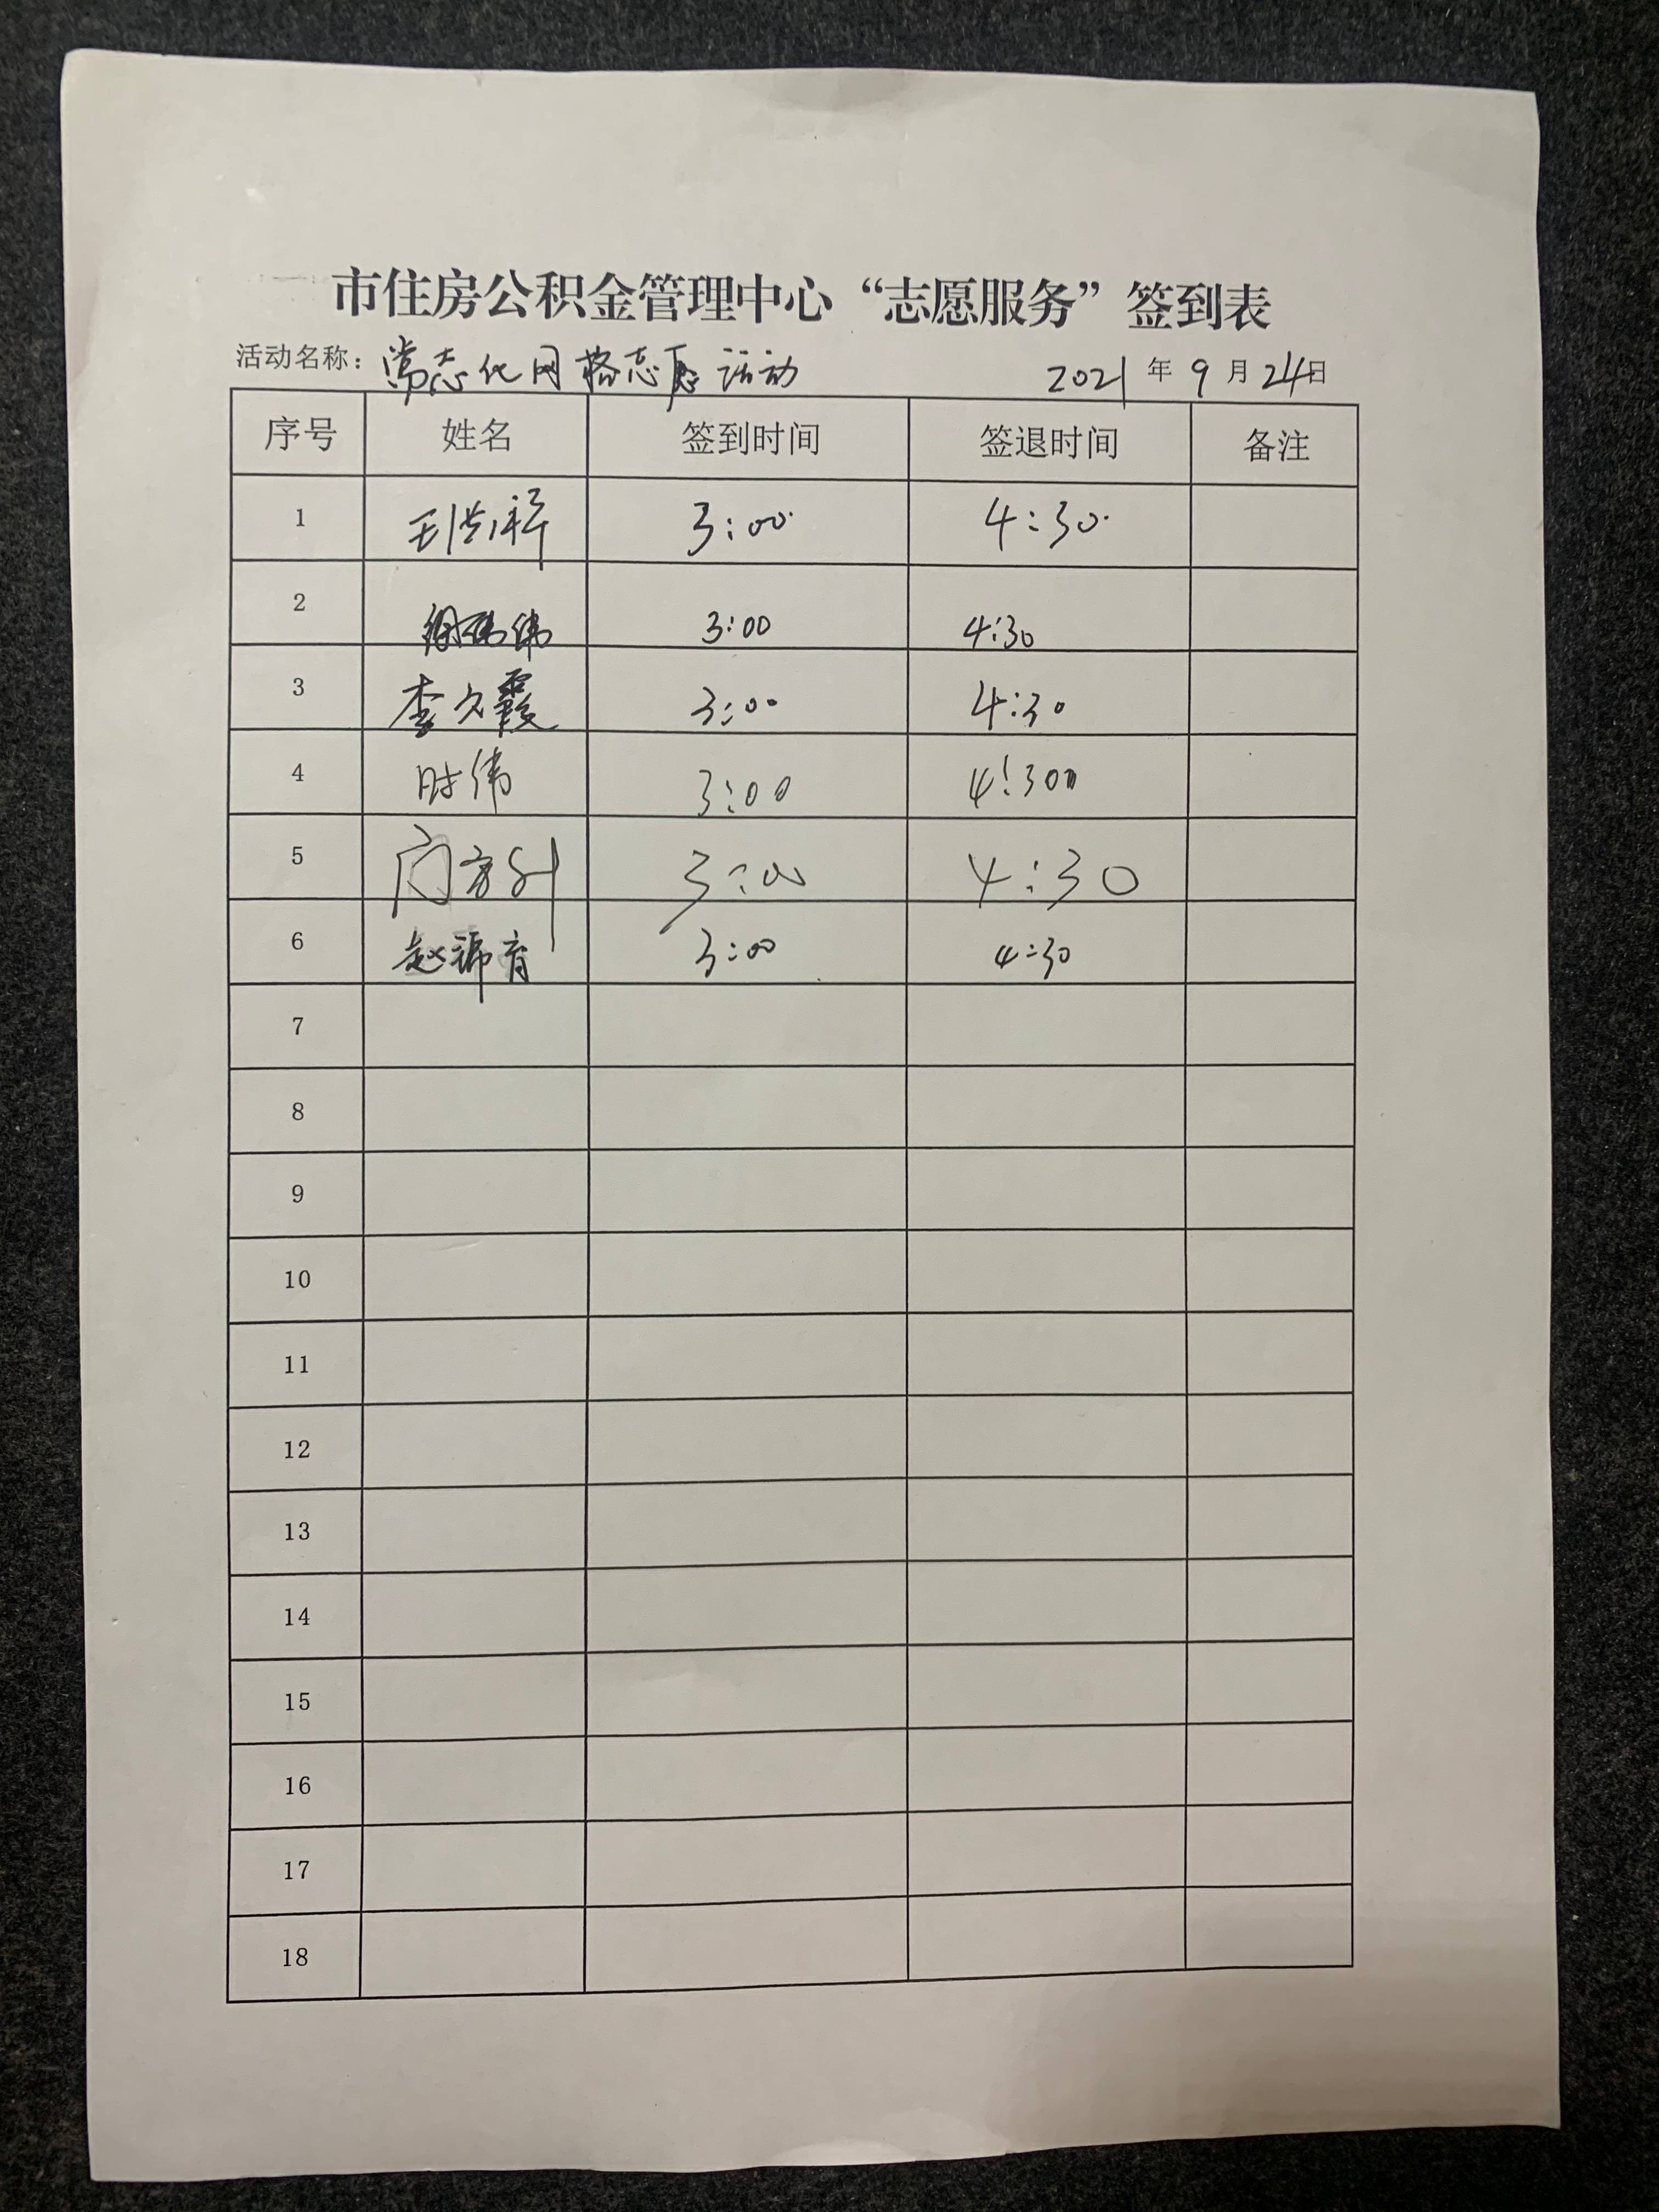 市住房公积金管理中心“志愿服务”签到表
活动名称：常态化网格志愿活动 2021年9月24日
序号 姓名 签到时间 签退时间 备注
1 3:00 4:30
2 3:00 4:30
3 李文霞 3:00 4:30
4 时伟 3:00 4:30
5 3:00 4:30
6 3:00 4:30
7
8
9
10
11
12
13
14
15
16
17
18